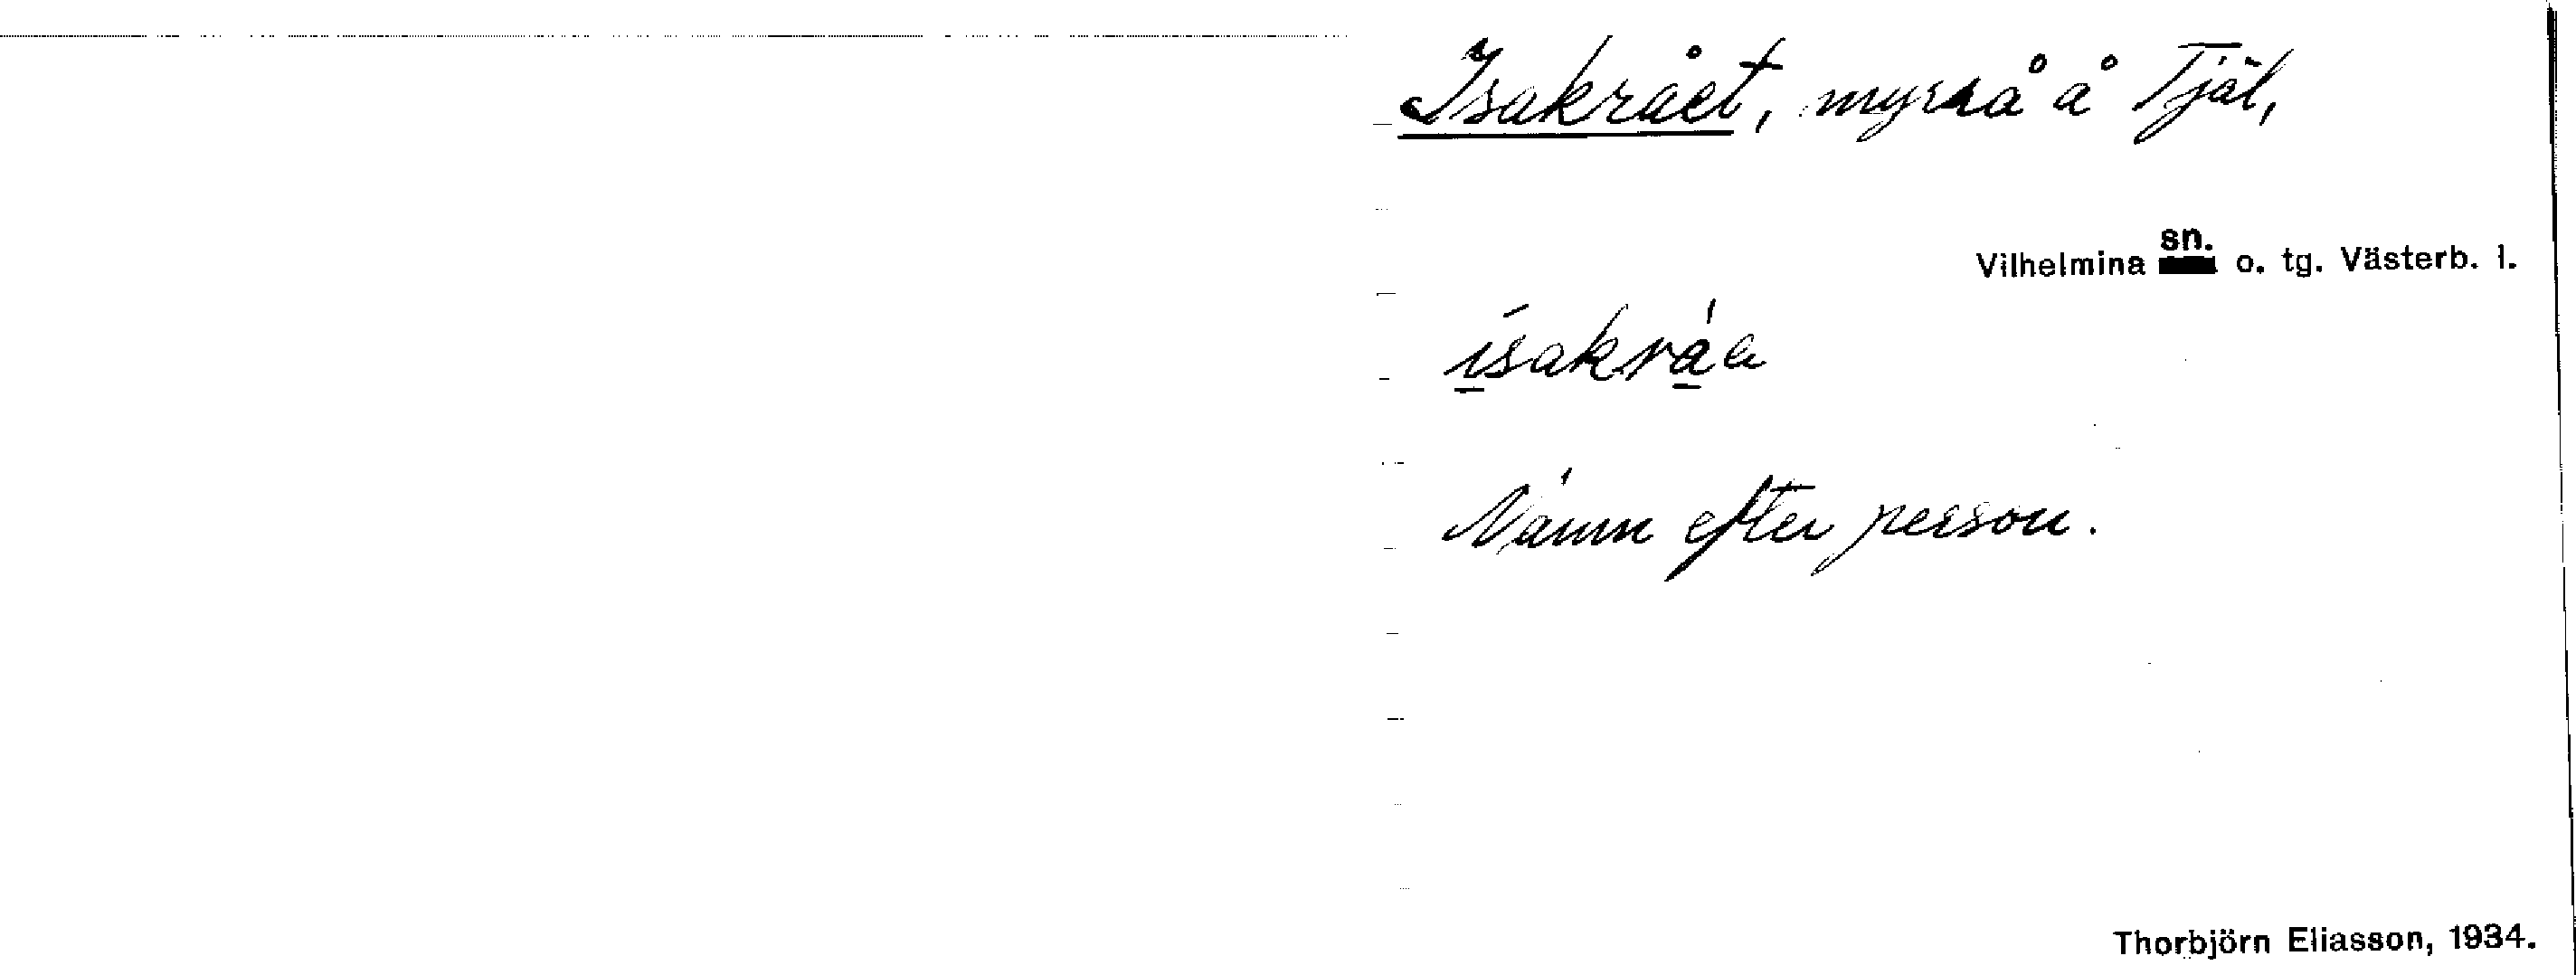 Isakrået, myrrå å Tjäl,
Vilhelmina sn. o. tg. Västerb. l.
Nämn efter person.
Thorbjörn Eliasson, 1934.